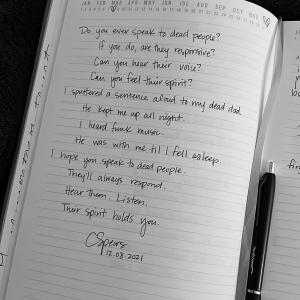 JAN FEB MAR APR MAY JUN JUL AUG SEP OCT NOV
Do you ever speak to dead people?
If you do, are they responsive?
Can you hear their voice?
Can you feel their spirit?
I sputtered a sentence aloud to my dead dad.
He kept me up all night.
I heard funk music.
He was with me til I fell asleep.
I hope you speak to dead people.
They'll always respond.
Hear Them. Listen.
Their spirit holds you.
CSpears
12.08.2021